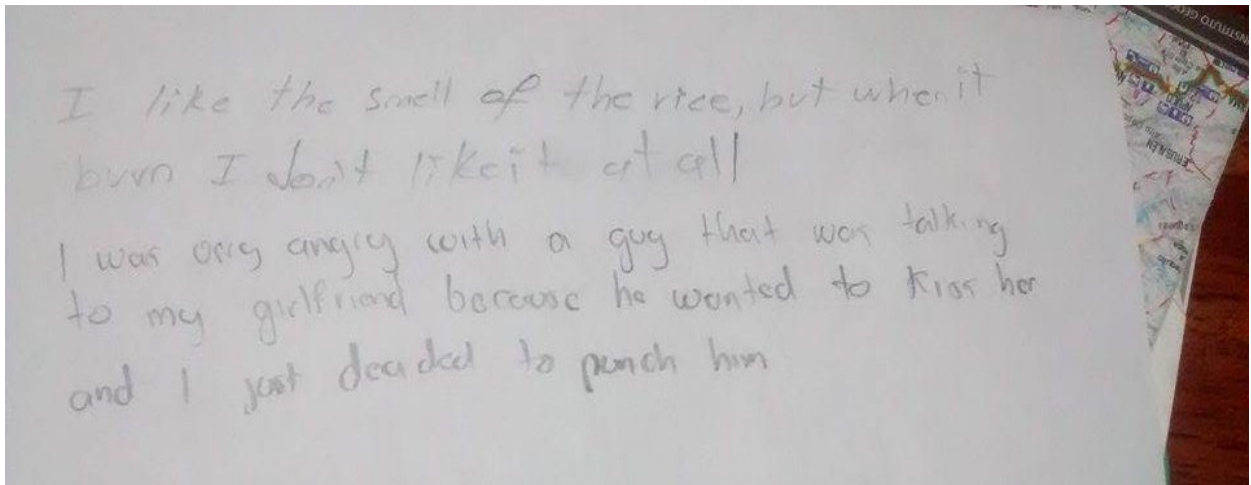 I like the smell of the rice, but when it
burn I don't like it at all
I was angry with a guy that was talking
to my girlfriend because he wanted to kiss her
and I just decided to punch him
INSTITUTO GEO
JERUSALÉN